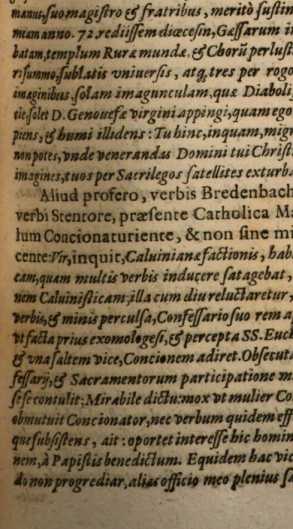 manui, suo magistro & fratribus, meritò sustin
miam anno. 72. rediissem diœcesin, Gassarum i
batam, templum Ruræ mundæ, & Chorū perlust
ri summo, sublatis vniuersis, atq, tres per rogo
imaginibus, solam imagunculam, quæ Diaboli
tie solet D. Genouefæ virgini appingi, quam ego
piens, & humi illidens: Tu hinc, inquam, migr
non potes, vnde venerandas Domini tui Christ
imagines, tuos per Sacrilegos satellites exturba
Aliud profero, verbis Bredenbach
verbi Stentore, præsente Catholica Ma
lum Concionaturiente, & non sine mi
cente: Vir, inquit, Caluinianæ factionis, hab
eam, quam multis verbis inducere satagebat,
nem Caluinisticam; illa cum diu reluctaretur,
verbis, & minis perculsa, Confessario suo rem a
vt facta prius exomologesi, & percepta SS. Euch
& vna saltem vice, Concionem adiret. Obsecuta
fessarij, & Sacramentorum participatione m
sese contulit: Mirabile dictu: mox vt mulier Co
obmutuit Concionator, nec verbum quidem eff
que subsistens, ait: oportet interesse hic homin
nem, à Papistis benedictum. Equidem hac vic
do non progrediar, alias officio meo plenius sa